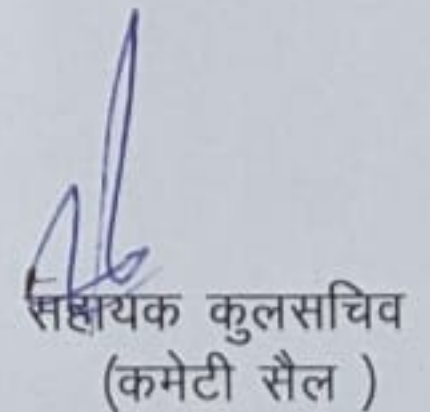 सहायक कुलसचिव
(कमेटी सैल )